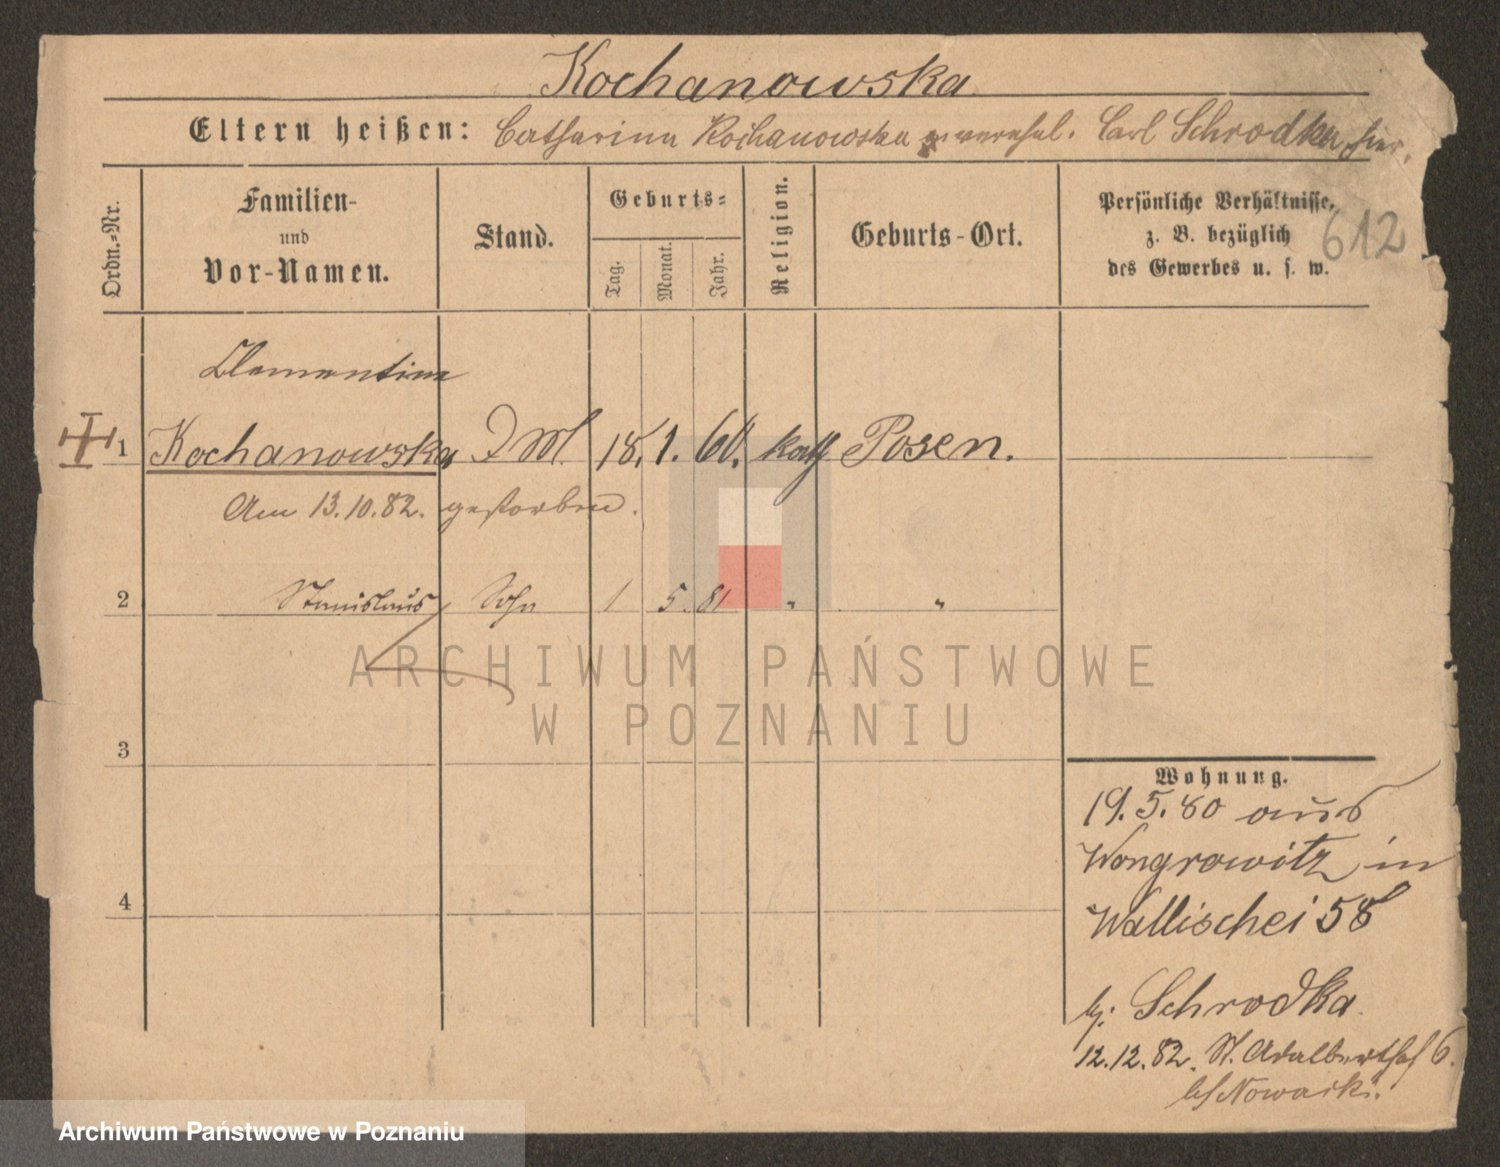 Kochanowska
Eltern heißen: Catharina Kochanowska verehel. Carl Schrodka, hier.
Ordn.=Nr.
Familien-
und
Vor-Namen.
Stand.
Geburts=
Tag.
Monat.
Jahr.
Religion.
Geburts-Ort.
Persönliche Verhältnisse,
z. B. bezüglich
des Gewerbes u. s. w.
612
Clementine
1 Kochanowska 18. 1. 60. kath Posen.
Am 13.10.82. gestorben.
2 Stanislaus Sohn 1 5. 81 " "
ARCHIWUM PAŃSTWOWE
W POZNANIU
3
Wohnung.
19.5.80 aus
Wongrowitz in
4
Wallischei 58
b. Schrodka.
12.12.82. St. Adalberthof 6.
bei Nowacki.
Archiwum Państwowe w Poznaniu